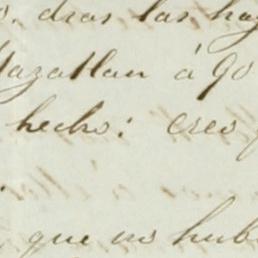 o. dias las hay
Mazatlan á 90
hecho: creo
que no hub